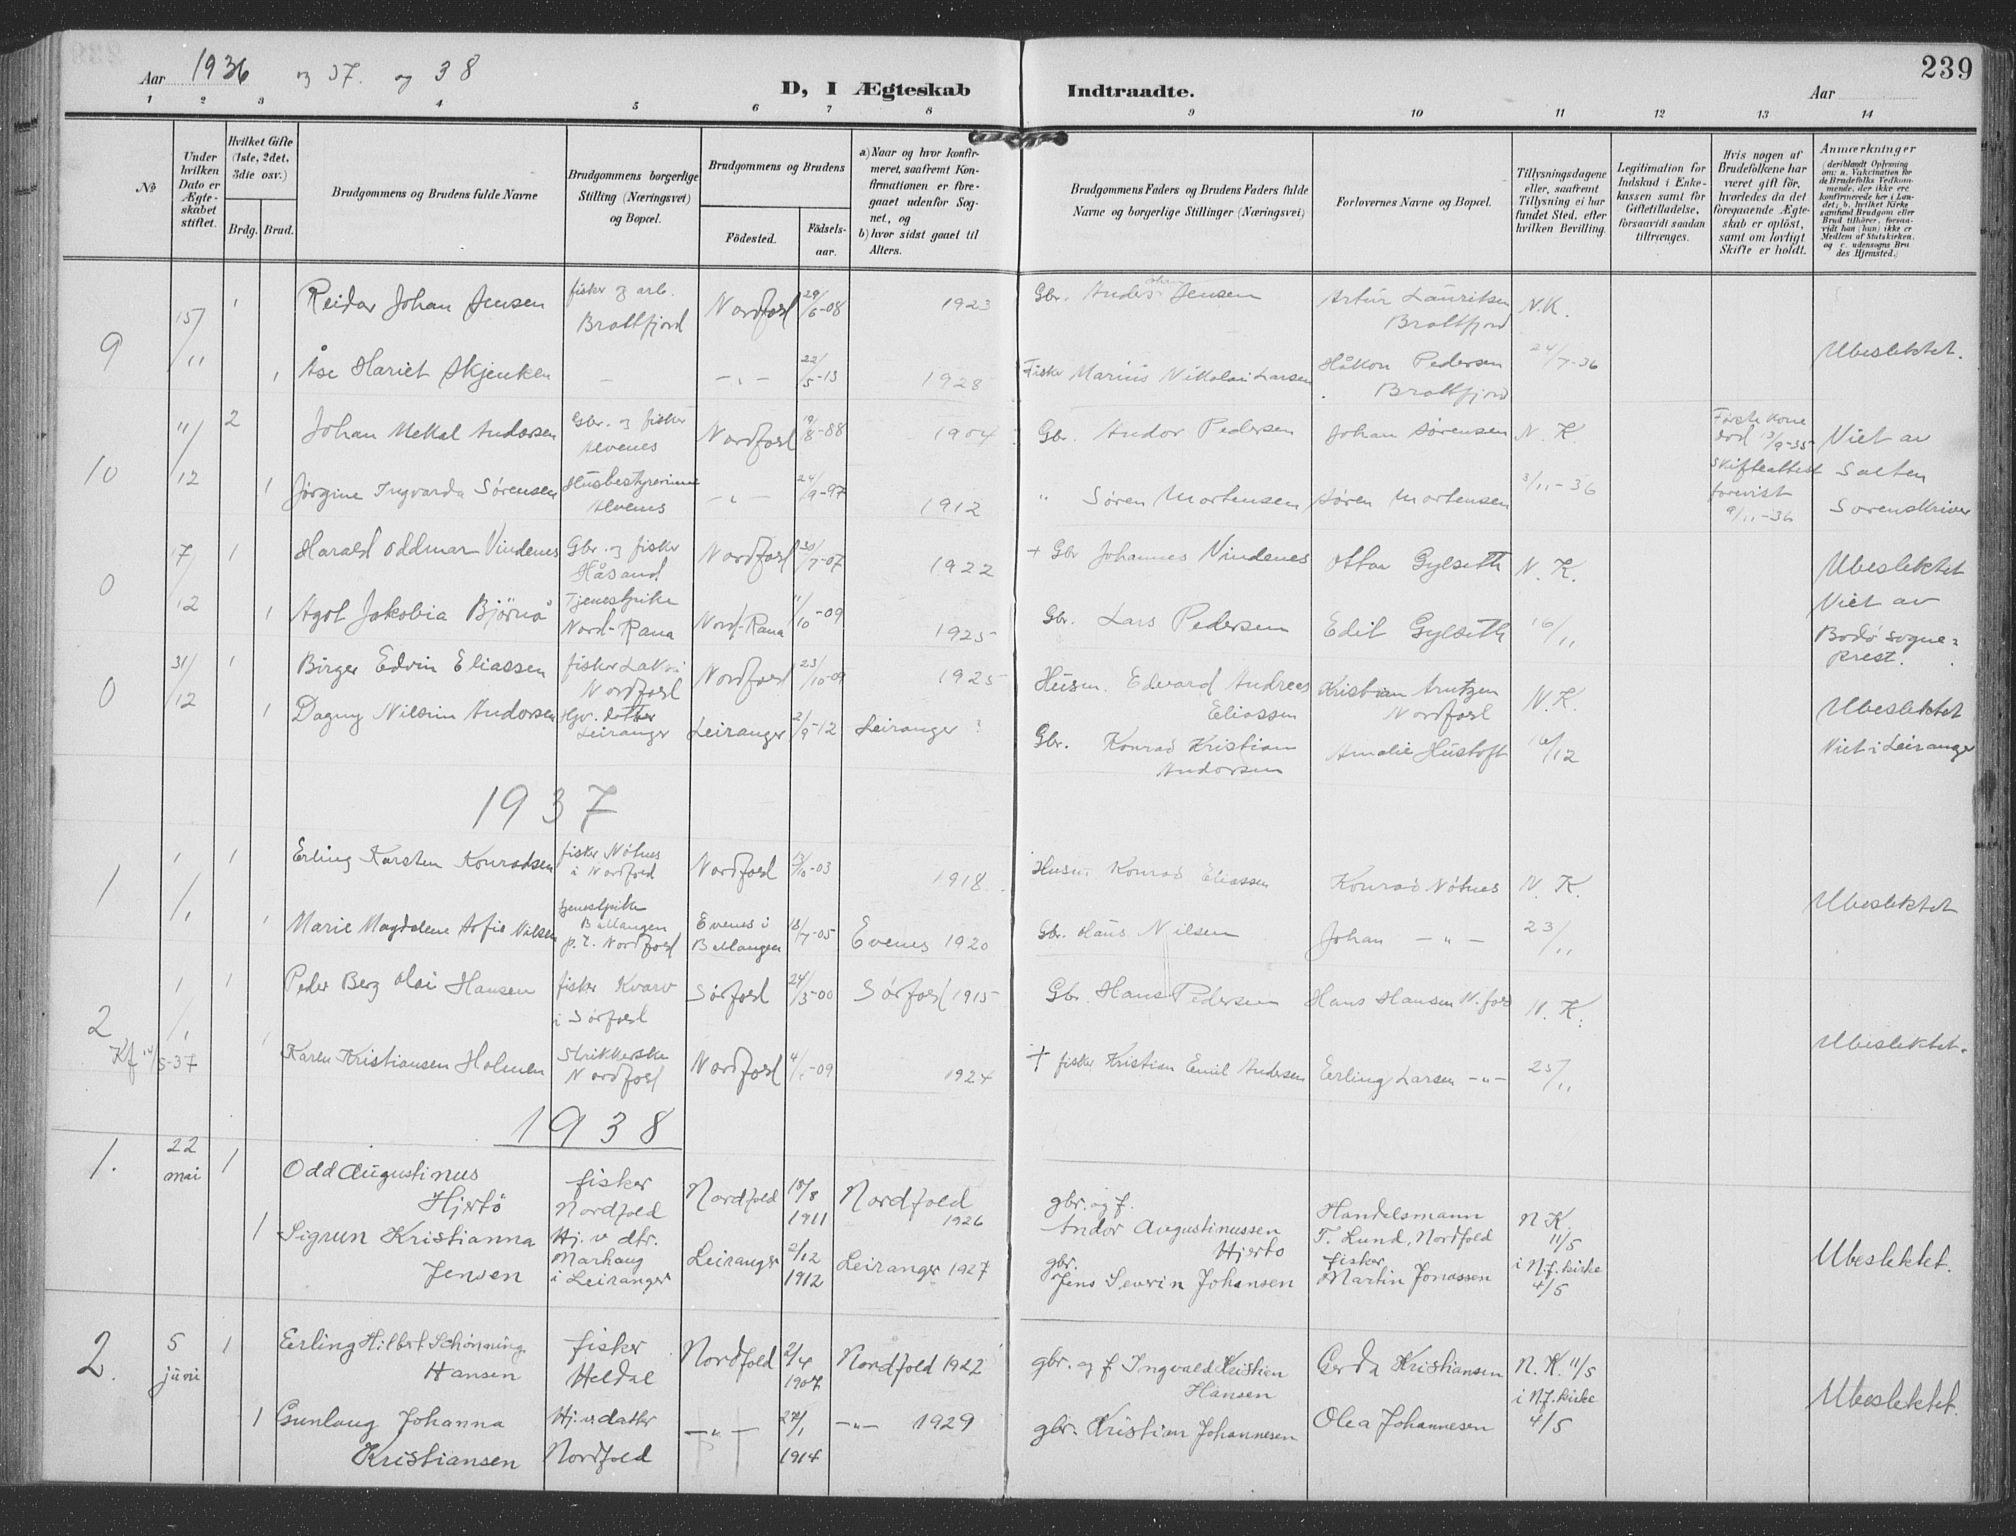 239
Aar 1936 og 37. og 38
D, I Ægteskab Indtraadte.
Aar
1 2 3 4 5 6 7 8 9 10 11 12 13 14
No
Under hvilken Dato er Ægteskabet stiftet.
Hvilket Gifte (1ste, 2det, 3die osv.)
Brdg. Brud.
Brudgommens og Brudens fulde Navne
Brudgommens borgerlige Stilling (Næringsvei) og Bopæl.
Brudgommens og Brudens
Fødested. Fødselsaar.
a) Naar og hvor konfirmeret, saafremt Konfirmationen er foregaaet udenfor Sognet, og
b) hvor sidst gaaet til Alters.
Brudgommens Faders og Brudens Faders fulde Navne og borgerlige Stillinger (Næringsvei)
Forlovernes Navne og Bopæl.
Tillysningsdagene eller, saafremt Tillysning ei har fundet Sted, efter hvilken Bevilling.
Legitimation for Indskud i Enkekassen samt for Giftetilladelse, forsaavidt saadan tiltrænges.
Hvis nogen af Brudefolkene har været gift før, hvorledes da det foregaaende Ægteskab er opløst, samt om lovligt Skifte er holdt.
Anmærkninger
(deriblandt Oplysning om: a. Vakcination for de Brudefolks Vedkommende, der ikke ere konfirmerede her i Landet; b. hvilket Kirkesamfund Brudgom eller Brud tilhører, forsaavidt han (hun) ikke er Medlem af Statskirken, og c. udensogns Brudes Hjemsted.)
9 15/11 1 Reidar Johan Jensen fisker og arb. Brattfjord Nordfold 29/6-08 1923 Gbr. Anders Johan Jensen Artur Lauritsen Brattfjord N.K.
1 Åse Hariet Skjenken — —„— 22/5-13 1928 Fisker Marius Nikolai Larsen Håkon Pedersen Brattfjord 24/7-36 Ubeslektet.
10 11/12 2 Johan Mekal Andorsen Gbr. og fisker Alvenes Nordfold 19/8-88 1904 Gbr. Andor Pedersen Johan Sørensen N. K. Første kone død 13/9-35 Viet av
1 Jørgine Ingvarda Sørensen Husbestyrerinne Alvenes —„— 24/9-97 1912 „ Søren Mortensen Søren Mortensen 3/11-36 Skifteattest forevist 9/11-36 Salten Sorenskriver
0 7/12 1 Harald Oddmar Vindenes Gbr. og fisker Håsand Nordfold 30/7-07 1922 + Gbr Johannes Vindenes Ottar Gylseth N. K. Ubeslektet
1 Agot Jakobia Bjørnå Tjenestpike Nord-Rana Nord-Rana 11/10-09 1925 Gbr. Lars Pedersen Edit Gylseth 16/11 Viet av Bodø sogneprest.
0 31/12 1 Birger Edvin Eliassen fisker Nordfold Nordfold 23/10-09 1925 Husm. Edvard Andreas Eliassen Kristian Arntzen Nordfold N.K. Ubeslektet
1 Dagny Nilsine Andorsen Hjv. datter Leiranger Leiranger 2/9-12 Leiranger ? Gbr. Konrad Kristian Andorsen Amalie Hustoft 16/12 Viet i Leiranger
1937
1 1/1 1 Erling Karsten Konradsen fisker Nötnes i Nordfold Nordfold /10-03 1918 Husm. Konrad Eliassen Konrad Nötnes N. K.
1 Marie Magdalene Sofie Nilsen tjenestpike Ballangen p.t. Nordfold Evenes i Ballangen 18/7-05 Evenes 1920 Gbr. Hans Nilsen Johan —„— 23/11 Ubeslektet
2 1/1 1 Peder Berg Olai Hansen fisker Kvarv i Sörfold Sörfold 24/3-00 Sörfold 1915 Gbr. Hans Pedersen Hans Hansen N. fold N. K.
Kf 14/5-37 1 Karen Kristiansen Holmen Strikkerske Nordfold Nordfold 4/1-09 1924 + fisker Kristian Emil Andersen Erling Larsen —„— 25/11 Ubeslektet.
1938
1. 22 mai 1 Odd Augustinus Hjertö fisker Nordfold Nordfold 18/8 1911 Nordfold 1926 gbr. og f. Andor Augustinussen Hjertö Handelsmann T. Lund, Nordfold N K. 11/5
1 Sigrun Kristianna Jensen Hj. v dtr. Marhaug i Leiranger Leiranger 2/12 1912 Leiranger 1927 gbr. Jens Severin Johansen fisker Martin Jonassen i N.f. kirke 4/5 Ubeslektet.
2. 5 juni 1 Erling Hilbert Schönning Hansen fisker Heldal Nordfold 2/4 1907 Nordfold 1922 gbr. og f Ingvald Kristian Hansen Gerda Kristiansen N. K. 11/5
1 Gunlaug Johanna Kristiansen Hj. v datter Nordfold —„— 27/1 1914 —„— 1929 gbr. Kristian Johannesen Olea Johannesen i N.f. kirke 4/5 Ubeslektet.